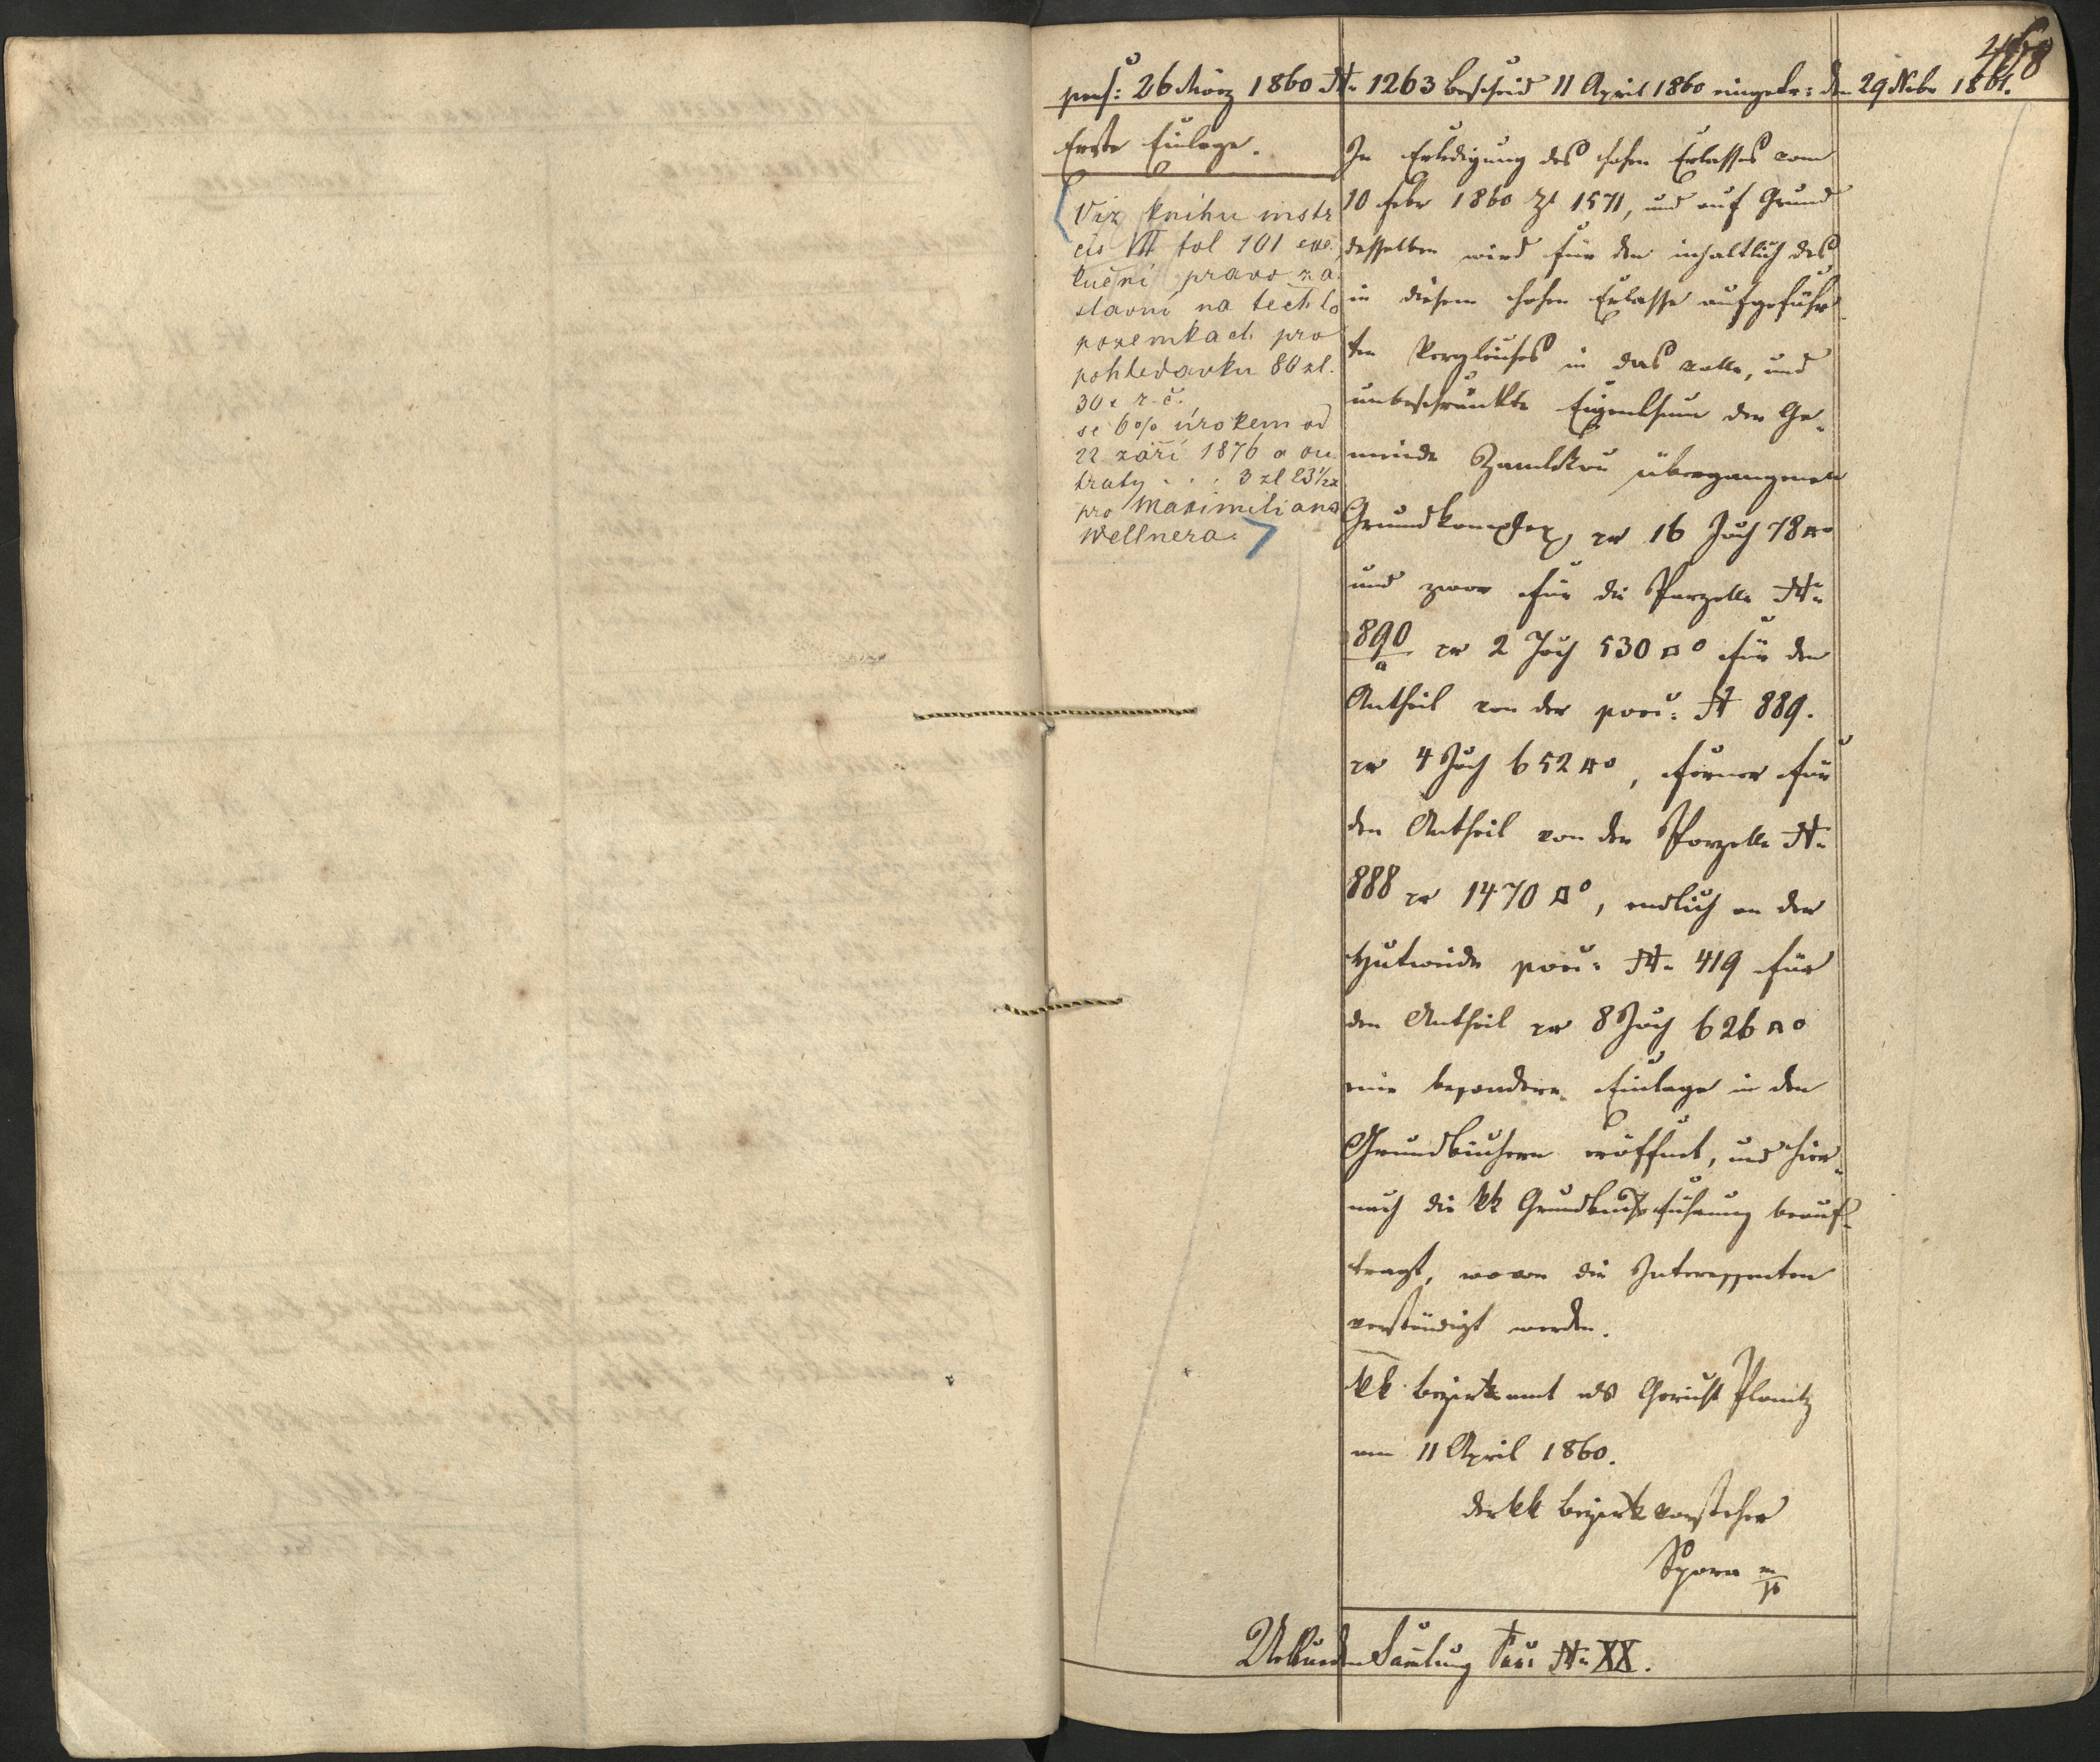 468
pras: 26 März 1860 N= 1263 Bescheid 11 April 1860 eingetr: den 29 Nebr 1861.
Erste Einlage.
Viz knihu instr
čís VII fol 101 exe
kuční právo zá
stavní na těchto
pozemkách pro
pohledávku 80 zl.
30 x r. č.
se 6% úrokem od
22 září 1876 a ou
traty . . . 3 zl 23½ x
pro Maximiliana
Wellnera.
In Erledigung des hohen Erlasses vom
10 Febr 1860 Zl 1571, und auf Grund
desselben wird für den inhaltlich des
in diesem hohen Erlasse aufgeführ
ten Vergleiches in das volle, und
unbeschränkte Eigenthum der Ge-
meinde übergangenen
Grundkomplex pr 16 Joch 78 □°
und zwar für die Parzelle N=
890/a pr 2 Joch 530 □° für den
Antheil von der parz: N 889.
pr 4 Joch 652 □°, ferner für
den Antheil von der Parzelle N=
888 pr 1470 □°, endlich an der
Hutweide parz: N= 419 für
den Antheil pr 8 Joch 626 □°
eine besondere Einlage in den
Grundbüchern eröffnet, und hier-
nach die kk Grundbuchsführung beauf-
tragt, wovon die Interessenten
verständigt werden.
kk Bezirksamt als Gericht Planitz
am 11 April 1860.
der kk Bezirksvorsteher
Spora m/p
Urkunden Samlung N= XX.